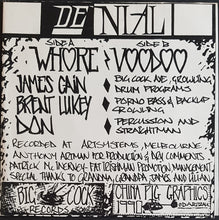 DENIAL
SIDE A
WHORE
SIDE B
VOODOO
JAMES CAIN
BIG COCK AVE, GROWLING
DRUM PROGRAMS
BRENT LUKEY
PORNO BASS & BACKUP
GROWLING
DON
PERCUSSION AND
STRAIGHTMAN
RECORDED AT ARTSYSTEMS, MELBOURNE
ANTHONY ARTMAN FOR PRODUCTION & DRY COMMENTS
PATRICK M.
FAT FISHMAN PROMOTION MANAGEMENT
SPECIAL THANKS TO GRANDMA, GRANDPA, JAMES, AND LILIAN
BIG COCK
RECORDS
CHINA PIG GRAPHICS
1990